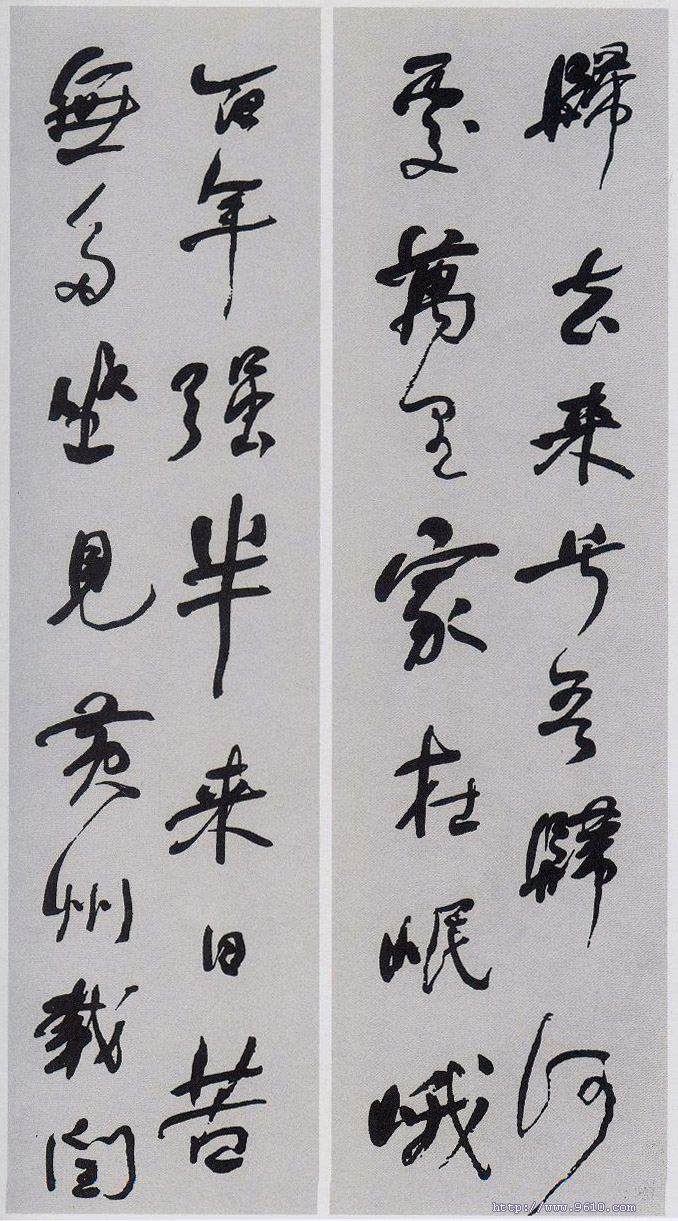 歸去来兮吾歸何
處萬里家在岷峨
百年强半来日苦
無多坐見黄州載閏
http://www.9610.com